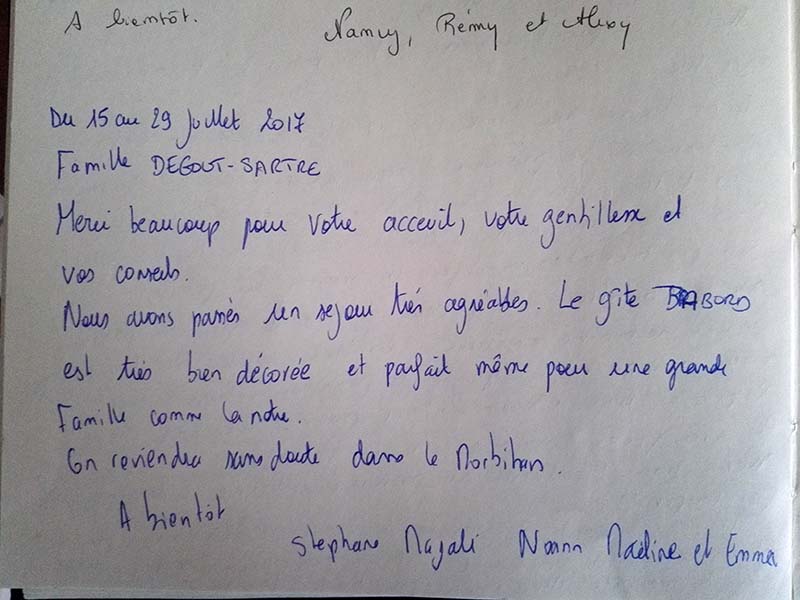 A bientôt.
Nancy, Rémy et Alexy
Du 15 au 29 Juillet 2017
Famille DEGOUT-SARTRE
Merci beaucoup pour votre acceuil, votre gentillesse et
vos conseils.
Nous avons passés un sejour très agréables. Le gîte BABORD
est très bien décorée et parfait même pour une grande
Famille comme la notre.
On reviendra sans doute dans le Morbihan.
A bientôt
Stephane Magali Noann Maéline et Emma